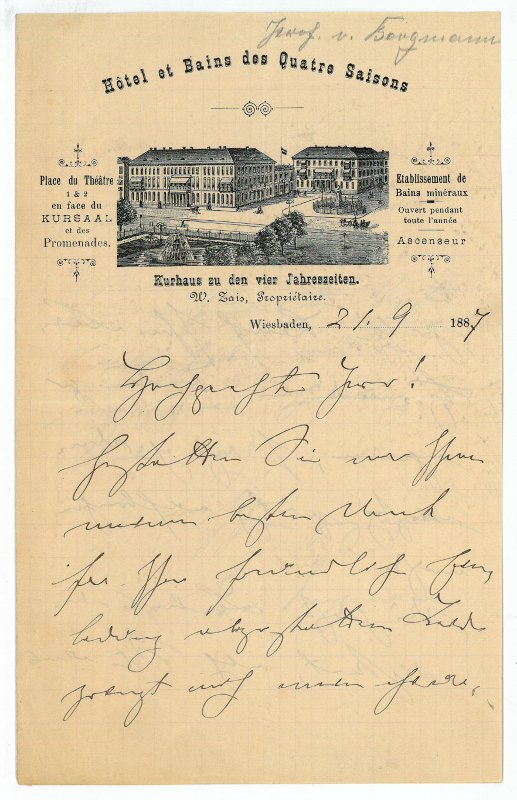 Prof. v. Bergmann
Hôtel et Bains des Quatre Saisons
Place du Théâtre
1 & 2
en face du
KURSAAL
et des
Promenades.
Etablissement de
Bains minéraux
Ouvert pendant
toute l'année
Ascenseur
Kurhaus zu den vier Jahreszeiten.
W. Zais, Propriétaire.
Wiesbaden, 21. 9 1887
Hochgeehrter Herr!
Gestatten Sie mir Ihnen
meinen besten Dank
für Ihre freundliche Ein,
ladung abzustatten. Leider
zwingt mich meine